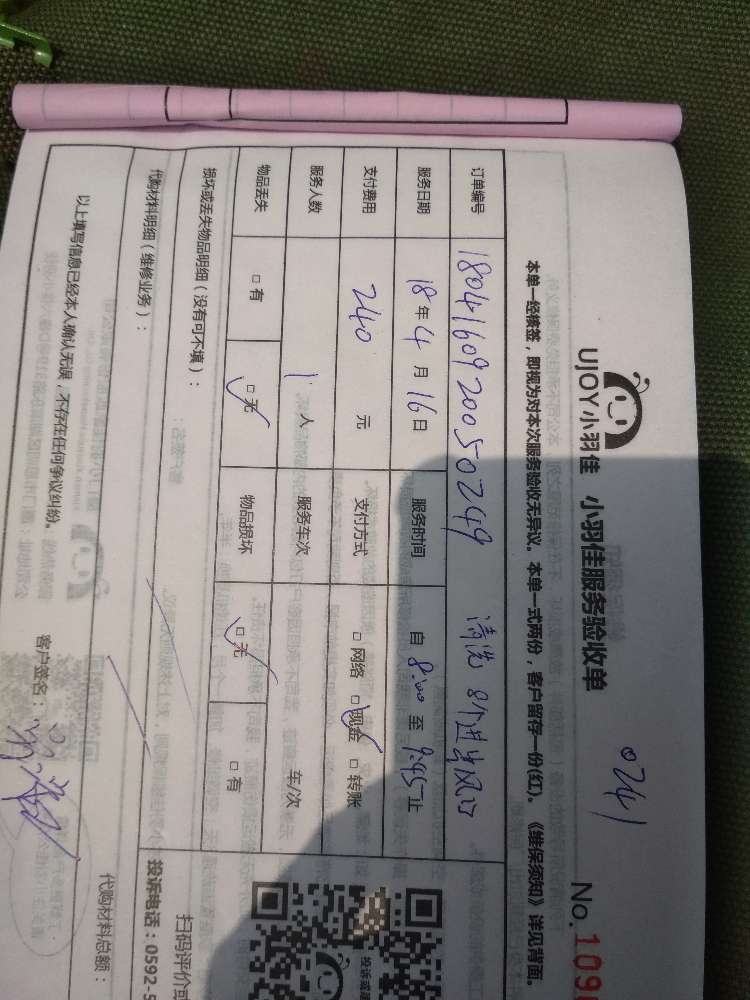 0241
UJOY小羽佳 小羽佳服务验收单
No. 109
本单一经核签，即视为对本次服务验收无异议。本单一式两份，客户留存一份(红)。《维保须知》详见背面。
订单编号 1804160920050249 清洗 8个进出风口
服务日期 18年4月16日 服务时间 自 8:00 至 9:45止
支付费用 240 元 支付方式 □网络 □现金 □转账
服务人数 1 人 服务车次 车/次
物品丢失 □有 □无 物品损坏 □无 □有
损坏或丢失物品明细（没有可不填）：
代购材料明细（维修业务）： 代购材料总额：
以上填写信息已经本人确认无误，不存在任何争议纠纷。 客户签名：
投诉或
扫码评价或
投诉电话：0592-5